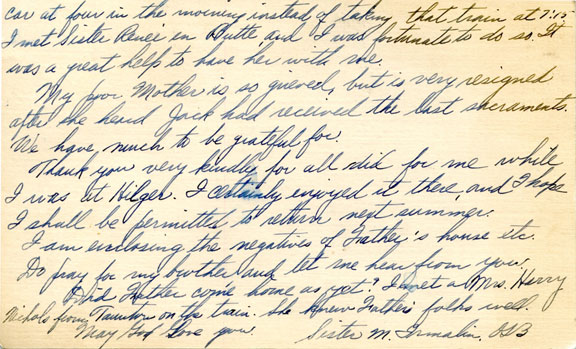 car at four in the morning instead of taking that train at 7:15
I met Sister Renee in Butte, and I was fortunate to do so. It
was a great help to have her with me.
My poor Mother is so grieved, but is very resigned
after she heard Jack had received the last sacraments.
We have much to be grateful for.
Thank you very kindly for all did for me while
I was at Hilger. I certainly enjoyed it there, and I hope
I shall be permitted to return next summer.
I am enclosing the negatives of Father's house etc.
Do pray for my brother and let me hear from you.
Did Father come home as yet? I met a Mrs. Harry
Nichols from Taunton on the train. She knew Father's folks well.
May God love you
Sister M. Irmalin, OSB